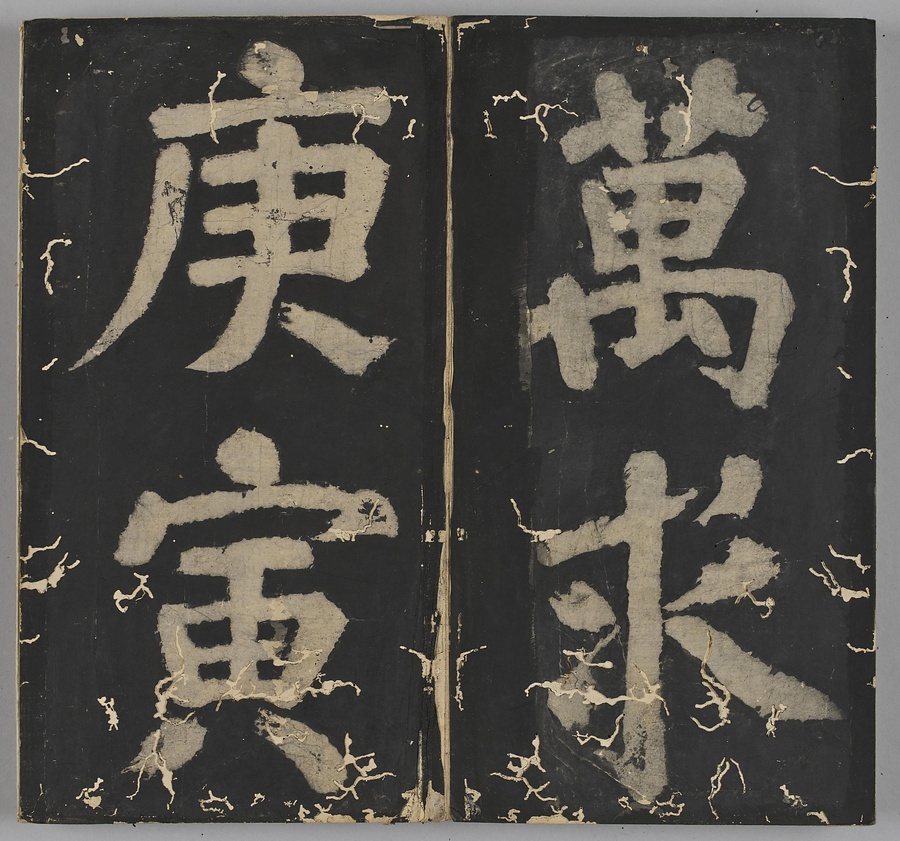 萬求
庚寅